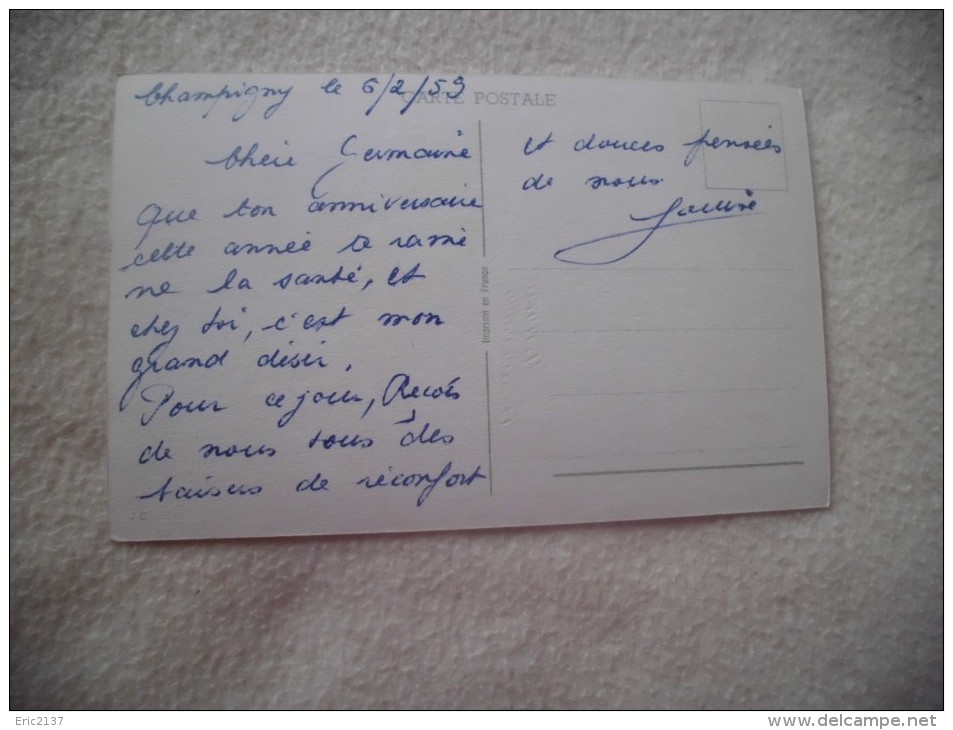 Champigny le 6/2/59
CARTE POSTALE
Chère Germaine
Que ton anniversaire
cette année te ramè
ne la santé, et
chez toi, c'est mon
grand désir.
Pour ce jour, Reçois
de nous tous des
baisers de réconfort
J.C
Imprimé en France
et douces pensées
de nous.
Eric2137
www.delcampe.net